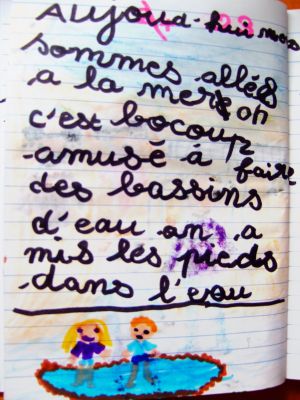 Aujoud-hui nous
sommes allés
a la mer on
c'est bocoup
amusé à faire
des bassins
d'eau on a
mis les pieds
dans l'eau